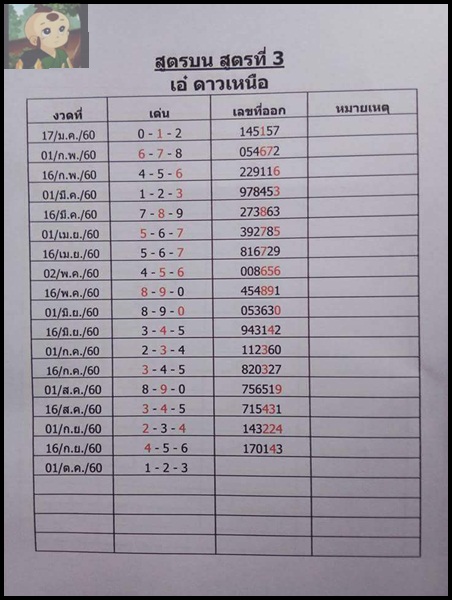 สูตรบน สูตรที่ 3
เอ๋ ดาวเหนือ
งวดที่ เด่น เลขที่ออก หมายเหตุ
17/ม.ค./60 0 - 1 - 2 145157
01/ก.พ./60 6 - 7 - 8 054672
16/ก.พ./60 4 - 5 - 6 229116
01/มี.ค./60 1 - 2 - 3 978453
16/มี.ค./60 7 - 8 - 9 273863
01/เม.ย./60 5 - 6 - 7 392785
16/เม.ย./60 5 - 6 - 7 816729
02/พ.ค./60 4 - 5 - 6 008656
16/พ.ค./60 8 - 9 - 0 454891
01/มิ.ย./60 8 - 9 - 0 053630
16/มิ.ย./60 3 - 4 - 5 943142
01/ก.ค./60 2 - 3 - 4 112360
16/ก.ค./60 3 - 4 - 5 820327
01/ส.ค./60 8 - 9 - 0 756519
16/ส.ค./60 3 - 4 - 5 715431
01/ก.ย./60 2 - 3 - 4 143224
16/ก.ย./60 4 - 5 - 6 170143
01/ต.ค./60 1 - 2 - 3